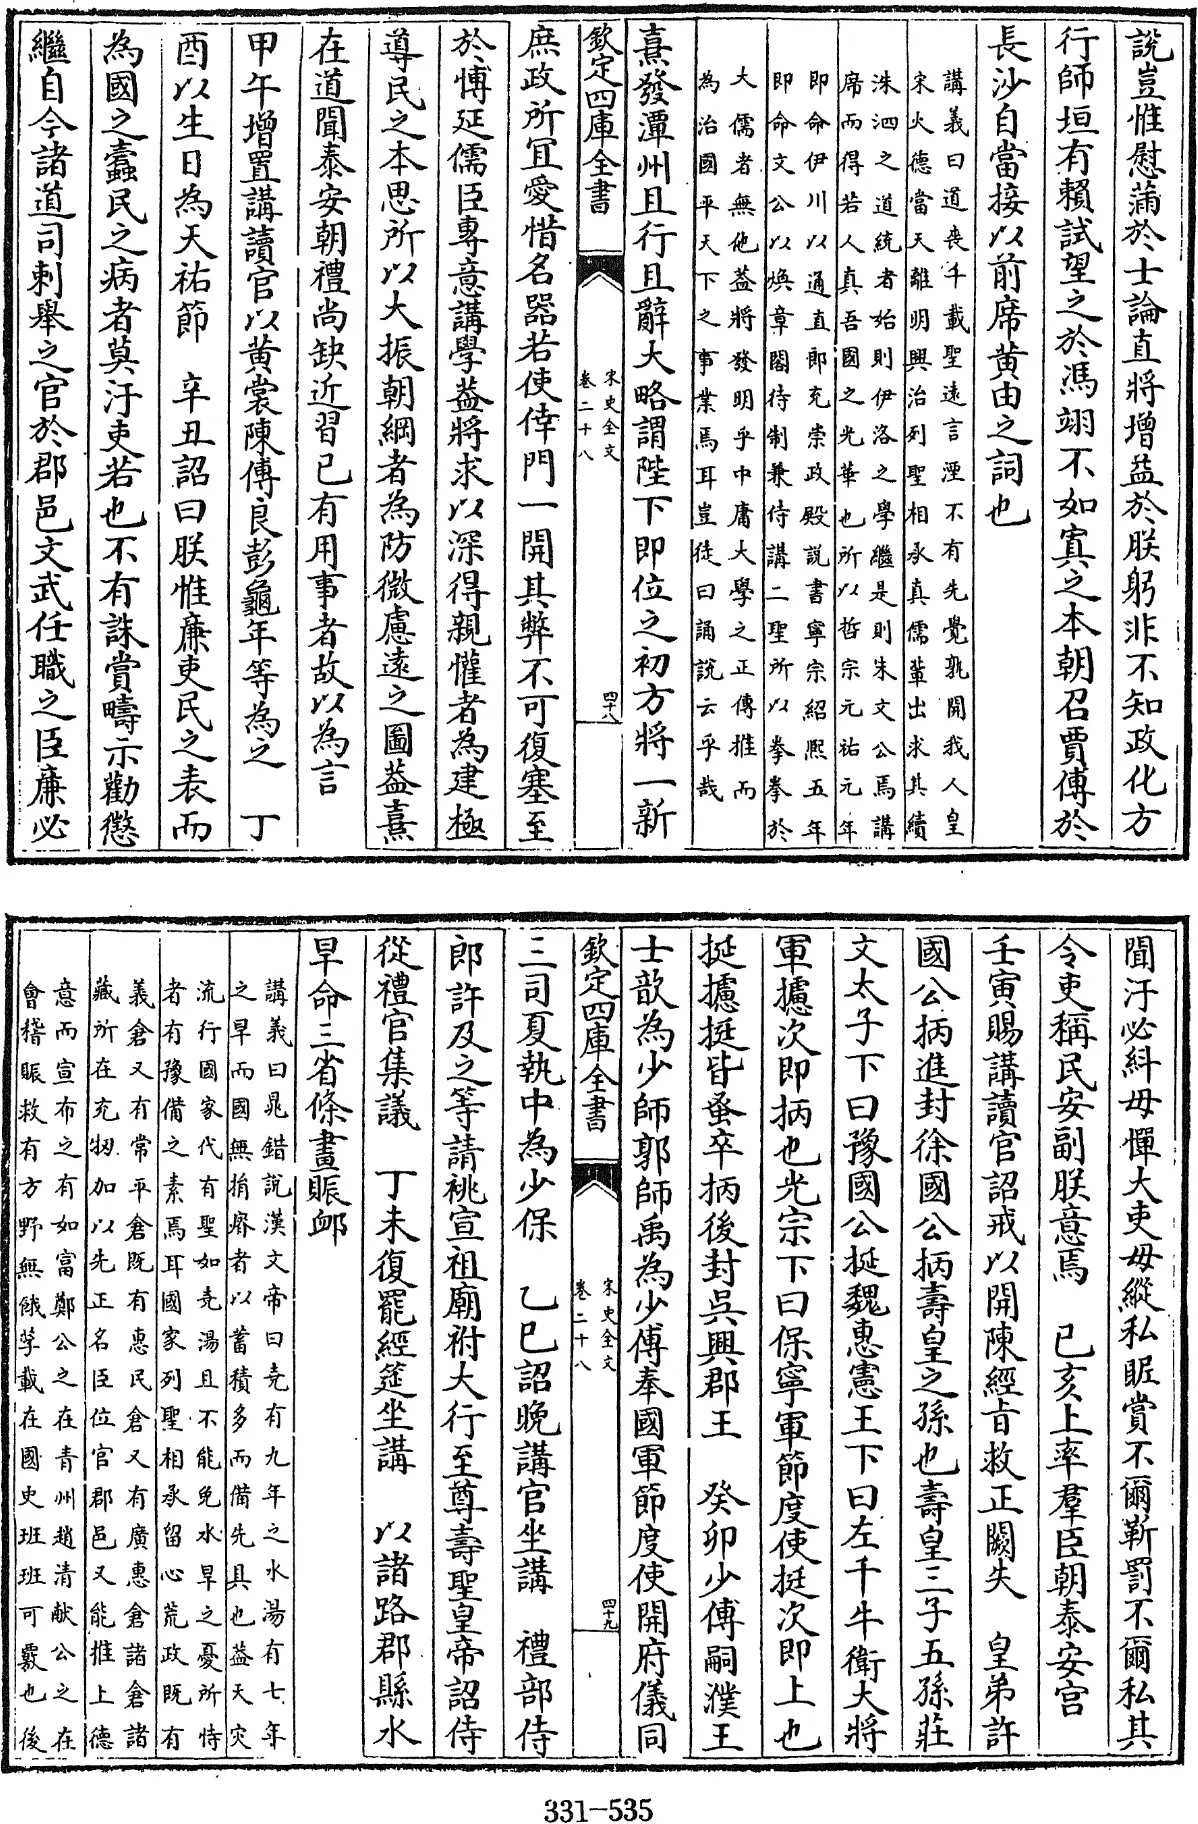 說豈惟慰滿於士論直將增益於朕躬非不知政化方
行師垣有賴試望之於馮翊不如寘之本朝召賈傅於
長沙自當接以前席黄由之詞也
講義曰道喪千載聖逺言湮不有先覺孰開我人皇
宋火德當天離明興治列聖相承真儒軰出求其績
洙泗之道統者始則伊洛之學繼是則朱文公焉講
席而得若人真吾國之光華也所以哲宗元祐元年
即命伊川以通直郎充崇政殿說書寧宗紹熙五年
即命文公以煥章閣待制兼侍講二聖所以拳拳於
大儒者無他葢將發明乎中庸大學之正傳推而
為治國平天下之事業焉耳豈徒曰誦說云乎哉
熹發潭州且行且辭大略謂陛下即位之初方將一新
欽定四庫全書
宋史全文
卷二十八
四十八
庶政所冝愛惜名器若使倖門一開其弊不可復塞至
於博延儒臣專意講學葢將求以深得親懽者為建極
導民之本思所以大振朝綱者為防微慮逺之圖葢熹
在道聞泰安朝禮尚缺近習已有用事者故以為言
甲午增置講讀官以黄裳陳傅良彭龜年等為之　丁
酉以生日為天祐節　辛丑詔曰朕惟廉吏民之表而
為國之蠧民之病者莫汙吏若也不有誅賞疇示勸懲
繼自今諸道司刺舉之官於郡邑文武任職之臣廉必
聞汙必糾毋憚大吏毋縱私昵賞不爾靳罰不爾私其
令吏稱民安副朕意焉　已亥上率羣臣朝泰安宫
壬寅賜講讀官詔戒以開陳經㫖救正闕失　皇弟許
國公抦進封徐國公抦壽皇之孫也壽皇三子五孫莊
文太子下曰豫國公挺魏惠憲王下曰左千牛衛大將
軍攄次即抦也光宗下曰保寧軍節度使挺次即上也
挺攄挺皆蚤卒抦後封吳興郡王　癸卯少傅嗣濮王
士歆為少師郭師禹為少傅奉國軍節度使開府儀同
欽定四庫全書
宋史全文
卷二十八
四十九
三司夏執中為少保　乙巳詔晚講官坐講　禮部侍
郎許及之等請祧宣祖廟祔大行至尊壽聖皇帝詔侍
從禮官集議　丁未復罷經筵坐講　以諸路郡縣水
旱命三省條畫賑䘏
講義曰晁錯說漢文帝曰堯有九年之水湯有七年
之旱而國無捐瘠者以蓄積多而備先具也葢天災
流行國家代有聖如堯湯且不能免水旱之憂所恃
者有豫備之素焉耳國家列聖相承留心荒政既有
義倉又有常平倉既有惠民倉又有廣惠倉諸倉諸
藏所在充牣加以先正名臣位官郡邑又能推上德
意而宣布之有如富鄭公之在青州趙清獻公之在
會稽賑救有方野無餓莩載在國史班班可覈也後
331-535